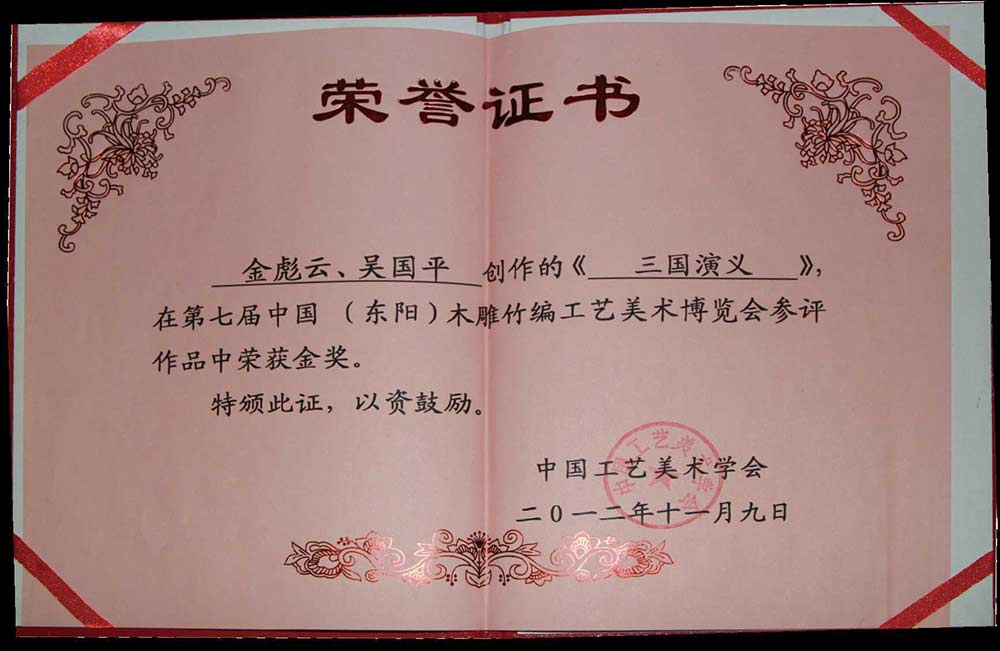 荣誉证书
金彪云、吴国平 创作的《 三国演义 》,
在第七届中国 (东阳)木雕竹编工艺美术博览会参评
作品中荣获金奖。
特颁此证，以资鼓励。
中国工艺美术学会
二0一二年十一月九日
中国工艺美术学会